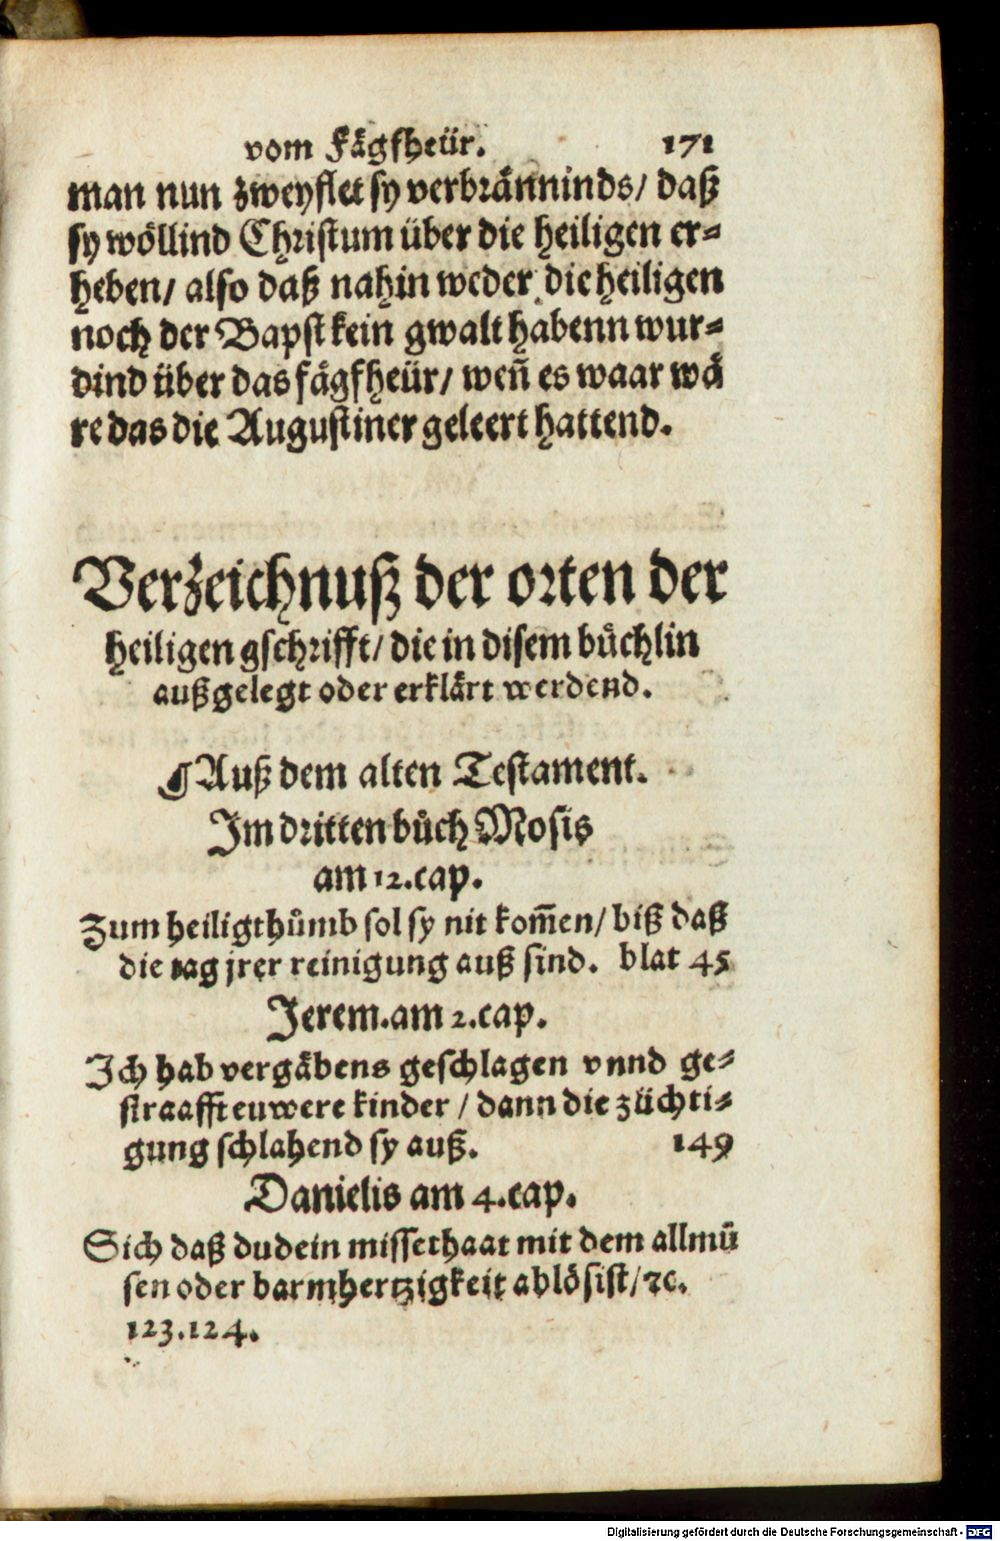 vom Fägfheür. 171
man nun zweyflet sy verbränninds/ daß
sy wöllind Christum über die heiligen er⸗
heben/ also daß nahin weder die heiligen
noch der Bapst kein gwalt habenn wur⸗
dind über das fägfheür/ weñ es waar wä
re das die Augustiner geleert hattend.
Verzeichnuß der orten der
heiligen gschrifft/ die in disem bůchlin
außgelegt oder erklärt werdend.
¶Auß dem alten Testament.
Im dritten bůch Mosis
am 12. cap.
Zum heiligthůmb sol sy nit kom̃en/ biß daß
die tag jrer reinigung auß sind. blat 45
Jerem. am 2. cap.
Ich hab vergäbens geschlagen vnnd ge⸗
straafft euwere kinder / dann die züchti⸗
gung schlahend sy auß. 149
Danielis am 4. cap.
Sich daß du dein missethaat mit dem allmů
sen oder barmhertzigkeit ablösist/ ꝛc.
123.124.
Digitalisierung gefördert durch die Deutsche Forschungsgemeinschaft - DFG